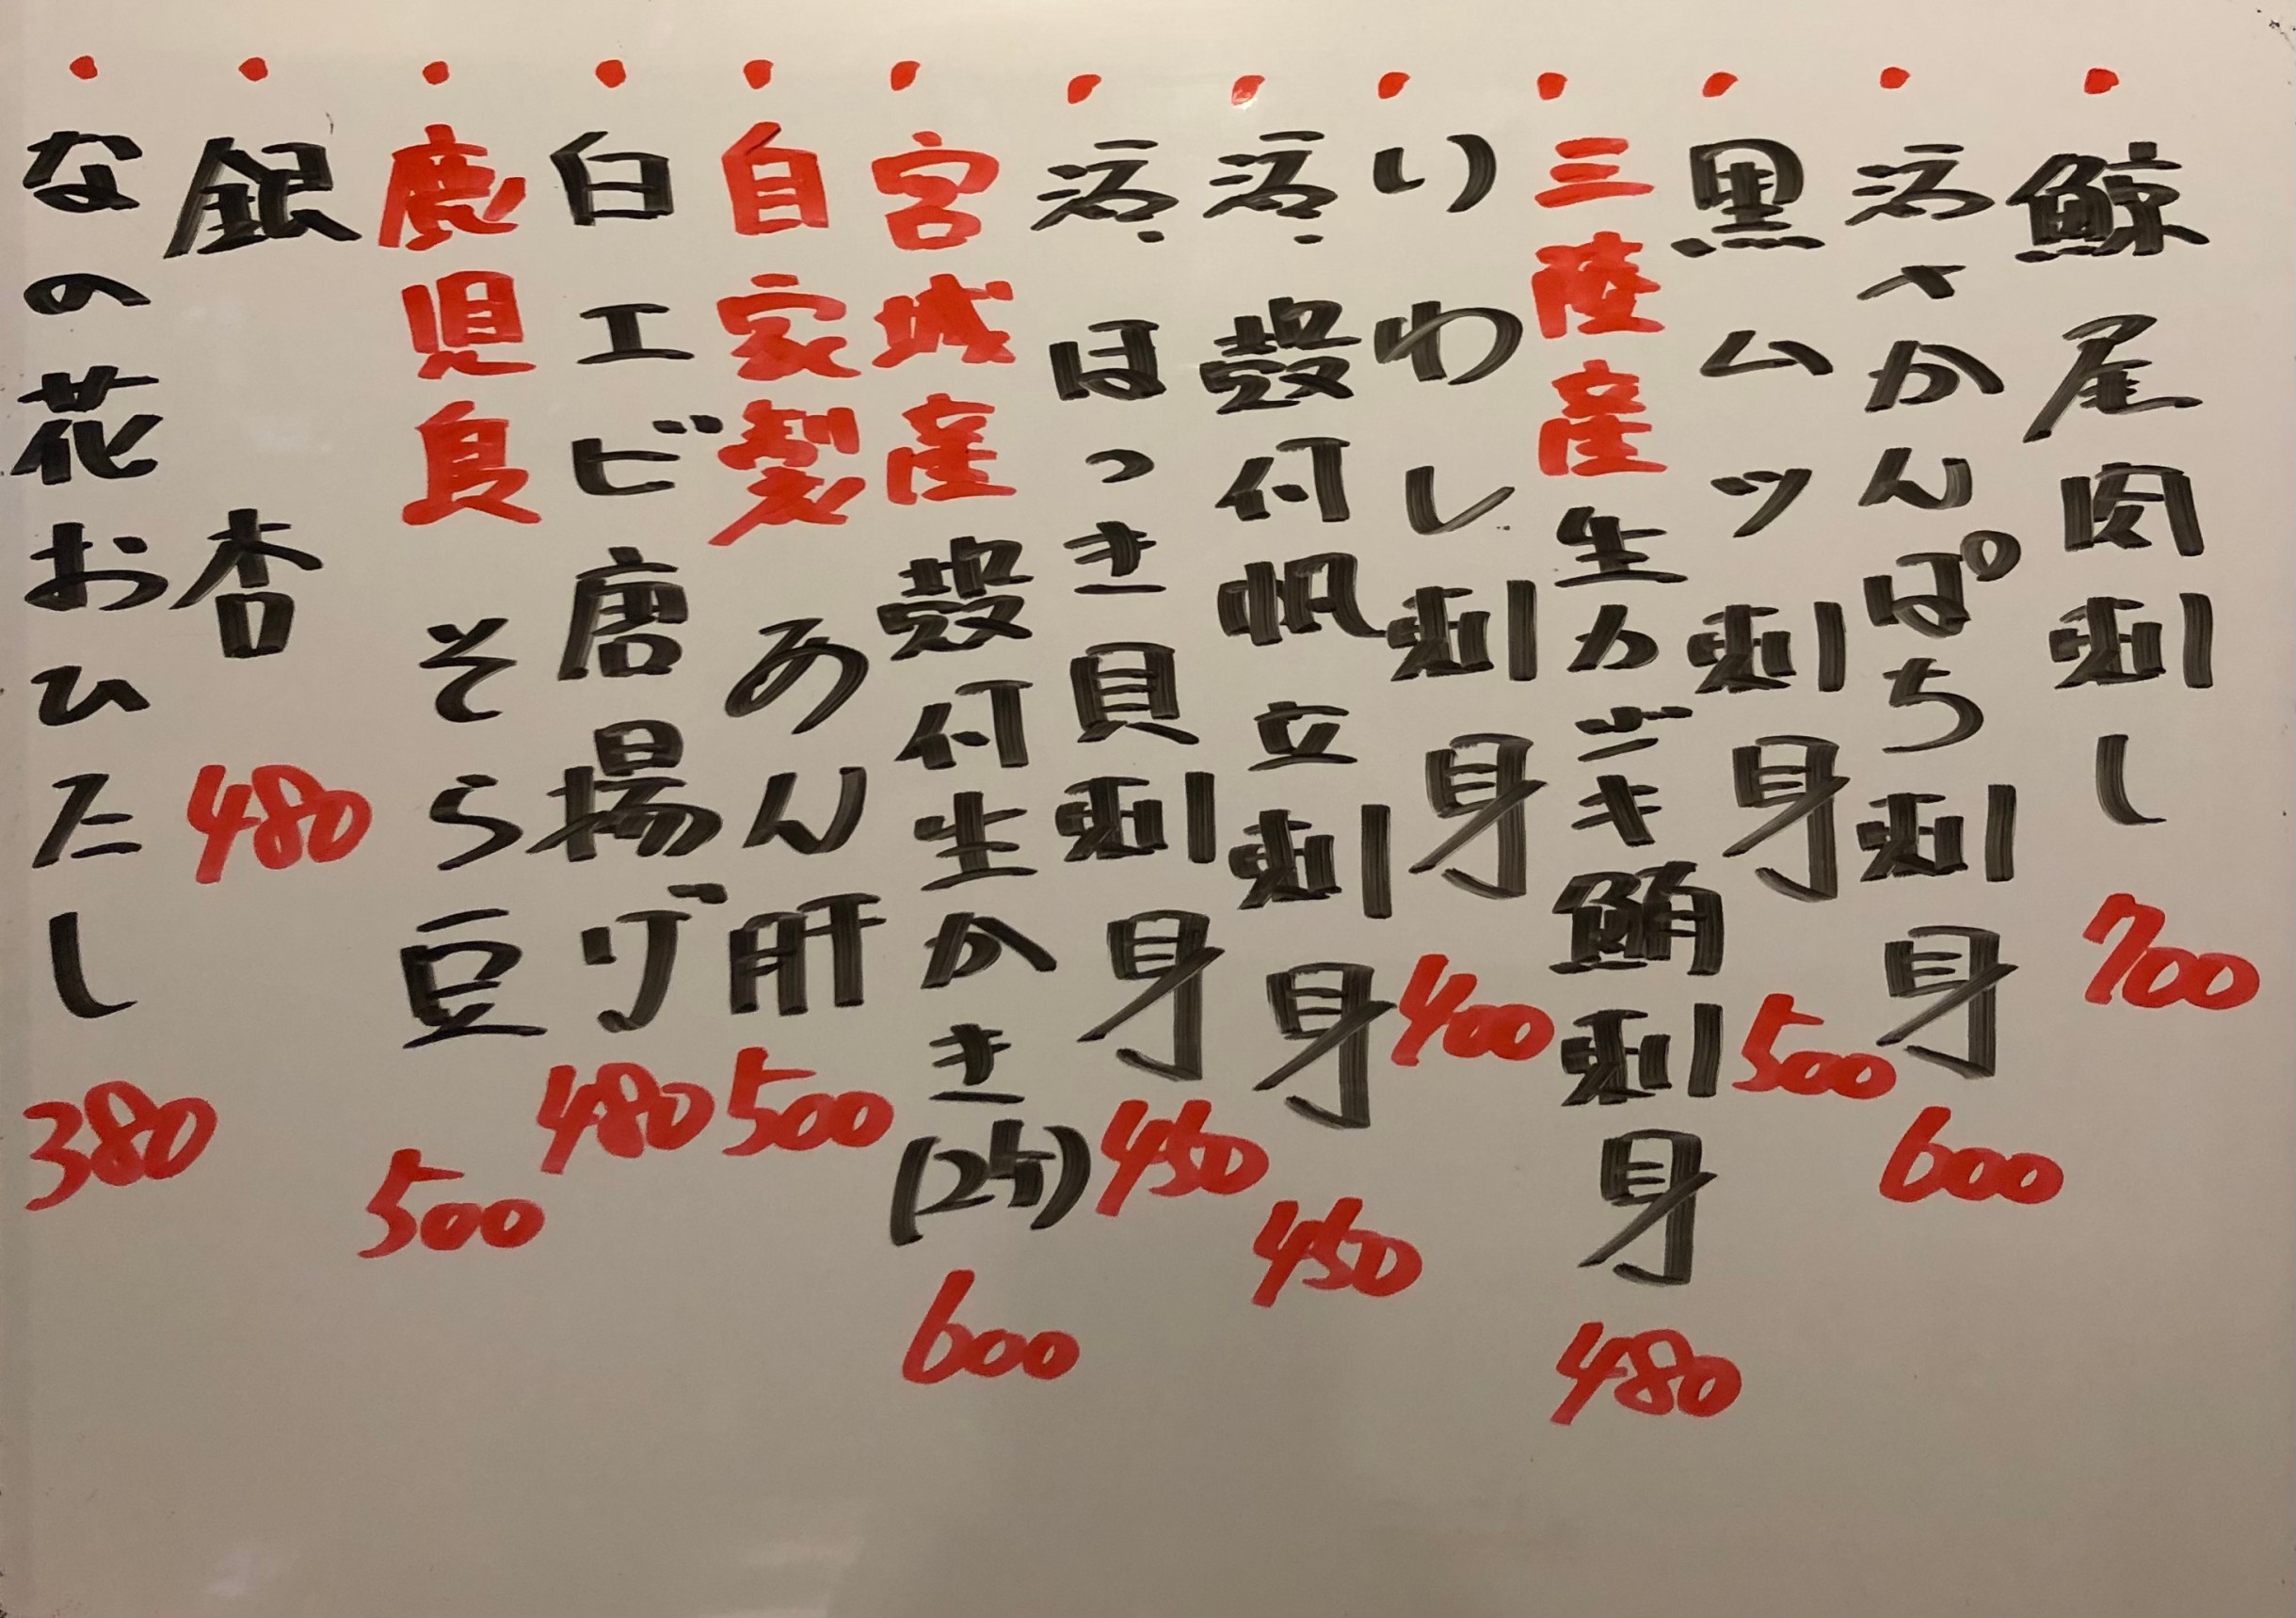 ・鯨尾肉刺し 700
・活〆かんぱち刺身 600
・黒ムツ刺身 500
・三陸産生カジキ鮪刺身 480
・いわし刺身 400
・活・殻付帆立刺身 450
・活・ほっき貝刺身 450
・宮城産殻付生かき(2ケ) 600
・自家製あん肝 500
・白エビ唐揚げ 480
・鹿児島そら豆 500
・銀杏 480
・なの花おひたし 380